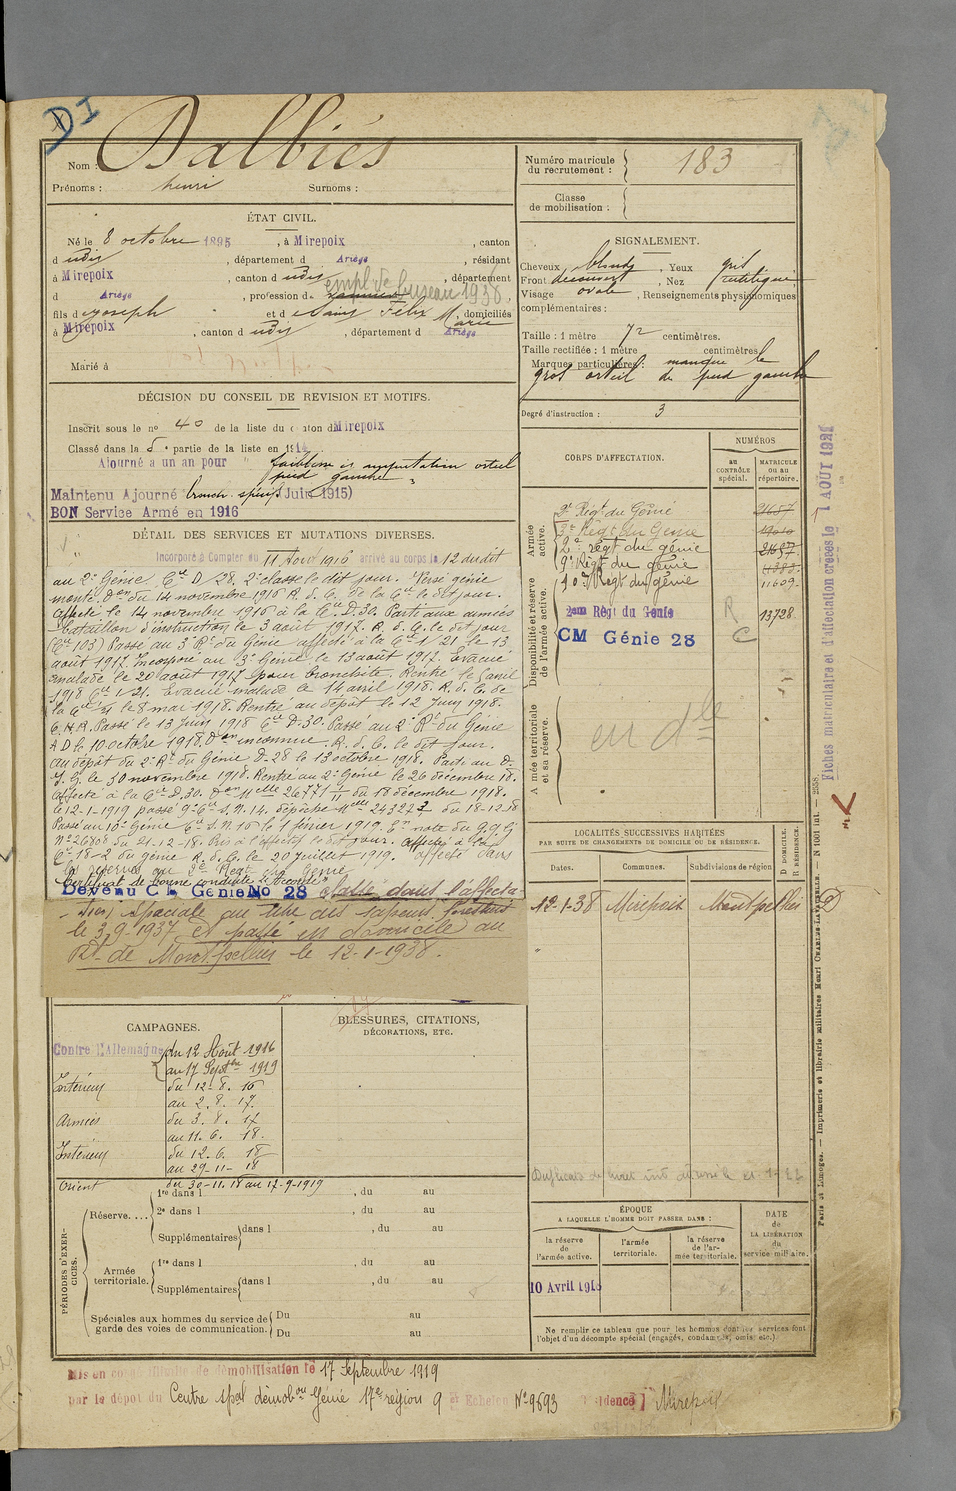 DI
Nom : Dalbiés
Prénoms : henri Surnoms :
Numéro matricule du recrutement : 183
Classe de mobilisation :
ÉTAT CIVIL.
Né le 8 octobre 1895, à Mirepoix, canton
d udis, département d Ariège, résidant
à Mirepoix, canton d udis, département
d Ariège, profession de empl. de bureau 1938.
fils de Joseph et de Sans Félix Marie, domiciliés
à Mirepoix, canton d udis, département d Ariège
Marié à
SIGNALEMENT.
Cheveux blonds, Yeux gris
Front découvert, Nez rectiligne
Visage ovale, Renseignements physionomiques
complémentaires :
Taille : 1 mètre 72 centimètres.
Taille rectifiée : 1 mètre centimètres.
Marques particulières : manque le
gros orteil du pied gauche
Degré d'instruction : 3
DÉCISION DU CONSEIL DE REVISION ET MOTIFS.
Inscrit sous le no 40 de la liste du canton d Mirepoix
Classé dans la 5e partie de la liste en 1914
Ajourné à un an pour faiblesse et amputation orteil
pied gauche
Maintenu Ajourné bronch. spécif (Juin 1915)
BON Service Armé en 1916
DÉTAIL DES SERVICES ET MUTATIONS DIVERSES.
Incorporé à Compter du 11 Aout 1916 arrivé au corps le 12 dudit
au 2e Génie Cie D 28, 2e classe le dit jour. Versé génie
monté Don du 14 novembre 1916 R. d. C. de la Cie le dit jour.
Affecté le 14 novembre 1916 à la Cie D.30. Parti aux armées
bataillon d'instruction le 3 août 1917. R. d. C. le dit jour
(Cie 103) Passé au 3e Rt du Génie affecté à la Cie 1/21 le 13
août 1917. Incorporé au 3e Génie le 13 août 1917. Evacué
malade le 20 août 1917 pour bronchite. Rentré le 5 avril
1918 Cie 1/21. Evacué malade le 14 avril 1918. R. d. C. de
la Cie le 8 mai 1918. Rentré au dépôt le 12 Juin 1918.
C.H.R. Passé le 13 Juin 1918 Cie D-30. Passé au 2e Rt du Génie
A D le 10 octobre 1918. Don inconnue. R. d. C. le dit jour.
au dépôt du 2e Rt du Génie D-28 le 13 octobre 1918. Parti au D.
J. G. le 30 novembre 1918. Rentré au 2e Génie le 26 décembre 18.
Affecté à la Cie D.30. Don Mlle 26771 1/11 du 18 décembre 1918.
le 12-1-1919 passé 9e Cie S.N. 14. dépêche Mlle 24322 3 du 18-12-18
Passé au 10e Génie Cie S.N. 16 le 1 février 1919. En note du G.Q.G
No 26808 du 21-12-18. Pris à l'effectif le dit jour. Affecté à la
Cie 18-2 du génie R. d. C. le 20 juillet 1919. affecté dans
la réserve au 2e Régt du Génie
Certificat de bonne conduite "Accordé"
Devenu CM Génie No 28 classé dans l'affecta-
tion spéciale au titre des sapeurs forestiers
le 3-9-1937 et passé en domicile au
Rt de Montpellier le 12-1-1938.
CORPS D'AFFECTATION.
NUMÉROS
au CONTRÔLE spécial.
MATRICULE ou au répertoire.
Armée active.
2e Régt du Génie 21687
3e Régt du Génie 19010
2e régt du génie 21687
9e Régt du génie
10e Régt du génie 11609
Disponibilité et réserve de l'armée active.
2eme Régt du Genie R 13728
CM Génie 28 C
Armée territoriale et sa réserve.
en dlle
Fiches matriculaire et d'affectation créées le 1 AOÛT 192
LOCALITÉS SUCCESSIVES HABITÉES
PAR SUITE DE CHANGEMENTS DE DOMICILE OU DE RÉSIDENCE.
Dates. Communes. Subdivisions de région D. DOMICILE. R. RÉSIDENCE.
12-1-38 Mirepoix Montpellier D
CAMPAGNES.
Contre l'Allemagne du 12 Aout 1916
au 17 Septbre 1919
Intérieur du 12-8. 16
au 2. 8. 17.
Armées du 3. 8. 17
au 11. 6. 18.
Intérieur du 12. 6. 18
au 29-11-18
Orient du 30-11.18 au 17-9-1919
BLESSURES, CITATIONS,
DÉCORATIONS, ETC.
PÉRIODES D'EXERCICES.
Réserve.... 1re dans l , du au
2e dans l , du au
Supplémentaires dans l , du au
Armée territoriale. 1re dans l , du au
Supplémentaires dans l , du au
Spéciales aux hommes du service de garde des voies de communication. Du au
Du au
Duplicata de livret ind. adressé le 21-1-27
ÉPOQUE
A LAQUELLE L'HOMME DOIT PASSER DANS :
la réserve de l'armée active.
l'armée territoriale.
la réserve de l'armée territoriale.
DATE de LA LIBÉRATION du service militaire.
10 Avril 1918
Ne remplir ce tableau que pour les hommes dont les services font
l'objet d'un décompte spécial (engagés, condamnés, omis, etc.).
Paris et Limoges. — Imprimerie et librairie militaires Henri CHARLES-LAVAUZELLE. — N 1001 int. — 2558.
Mis en congé illimité de démobilisation le 17 Septembre 1919
par le dépôt du Centre spal démobon Génie 17e région 9 er Echelon No 9693 Résidence Mirepoix